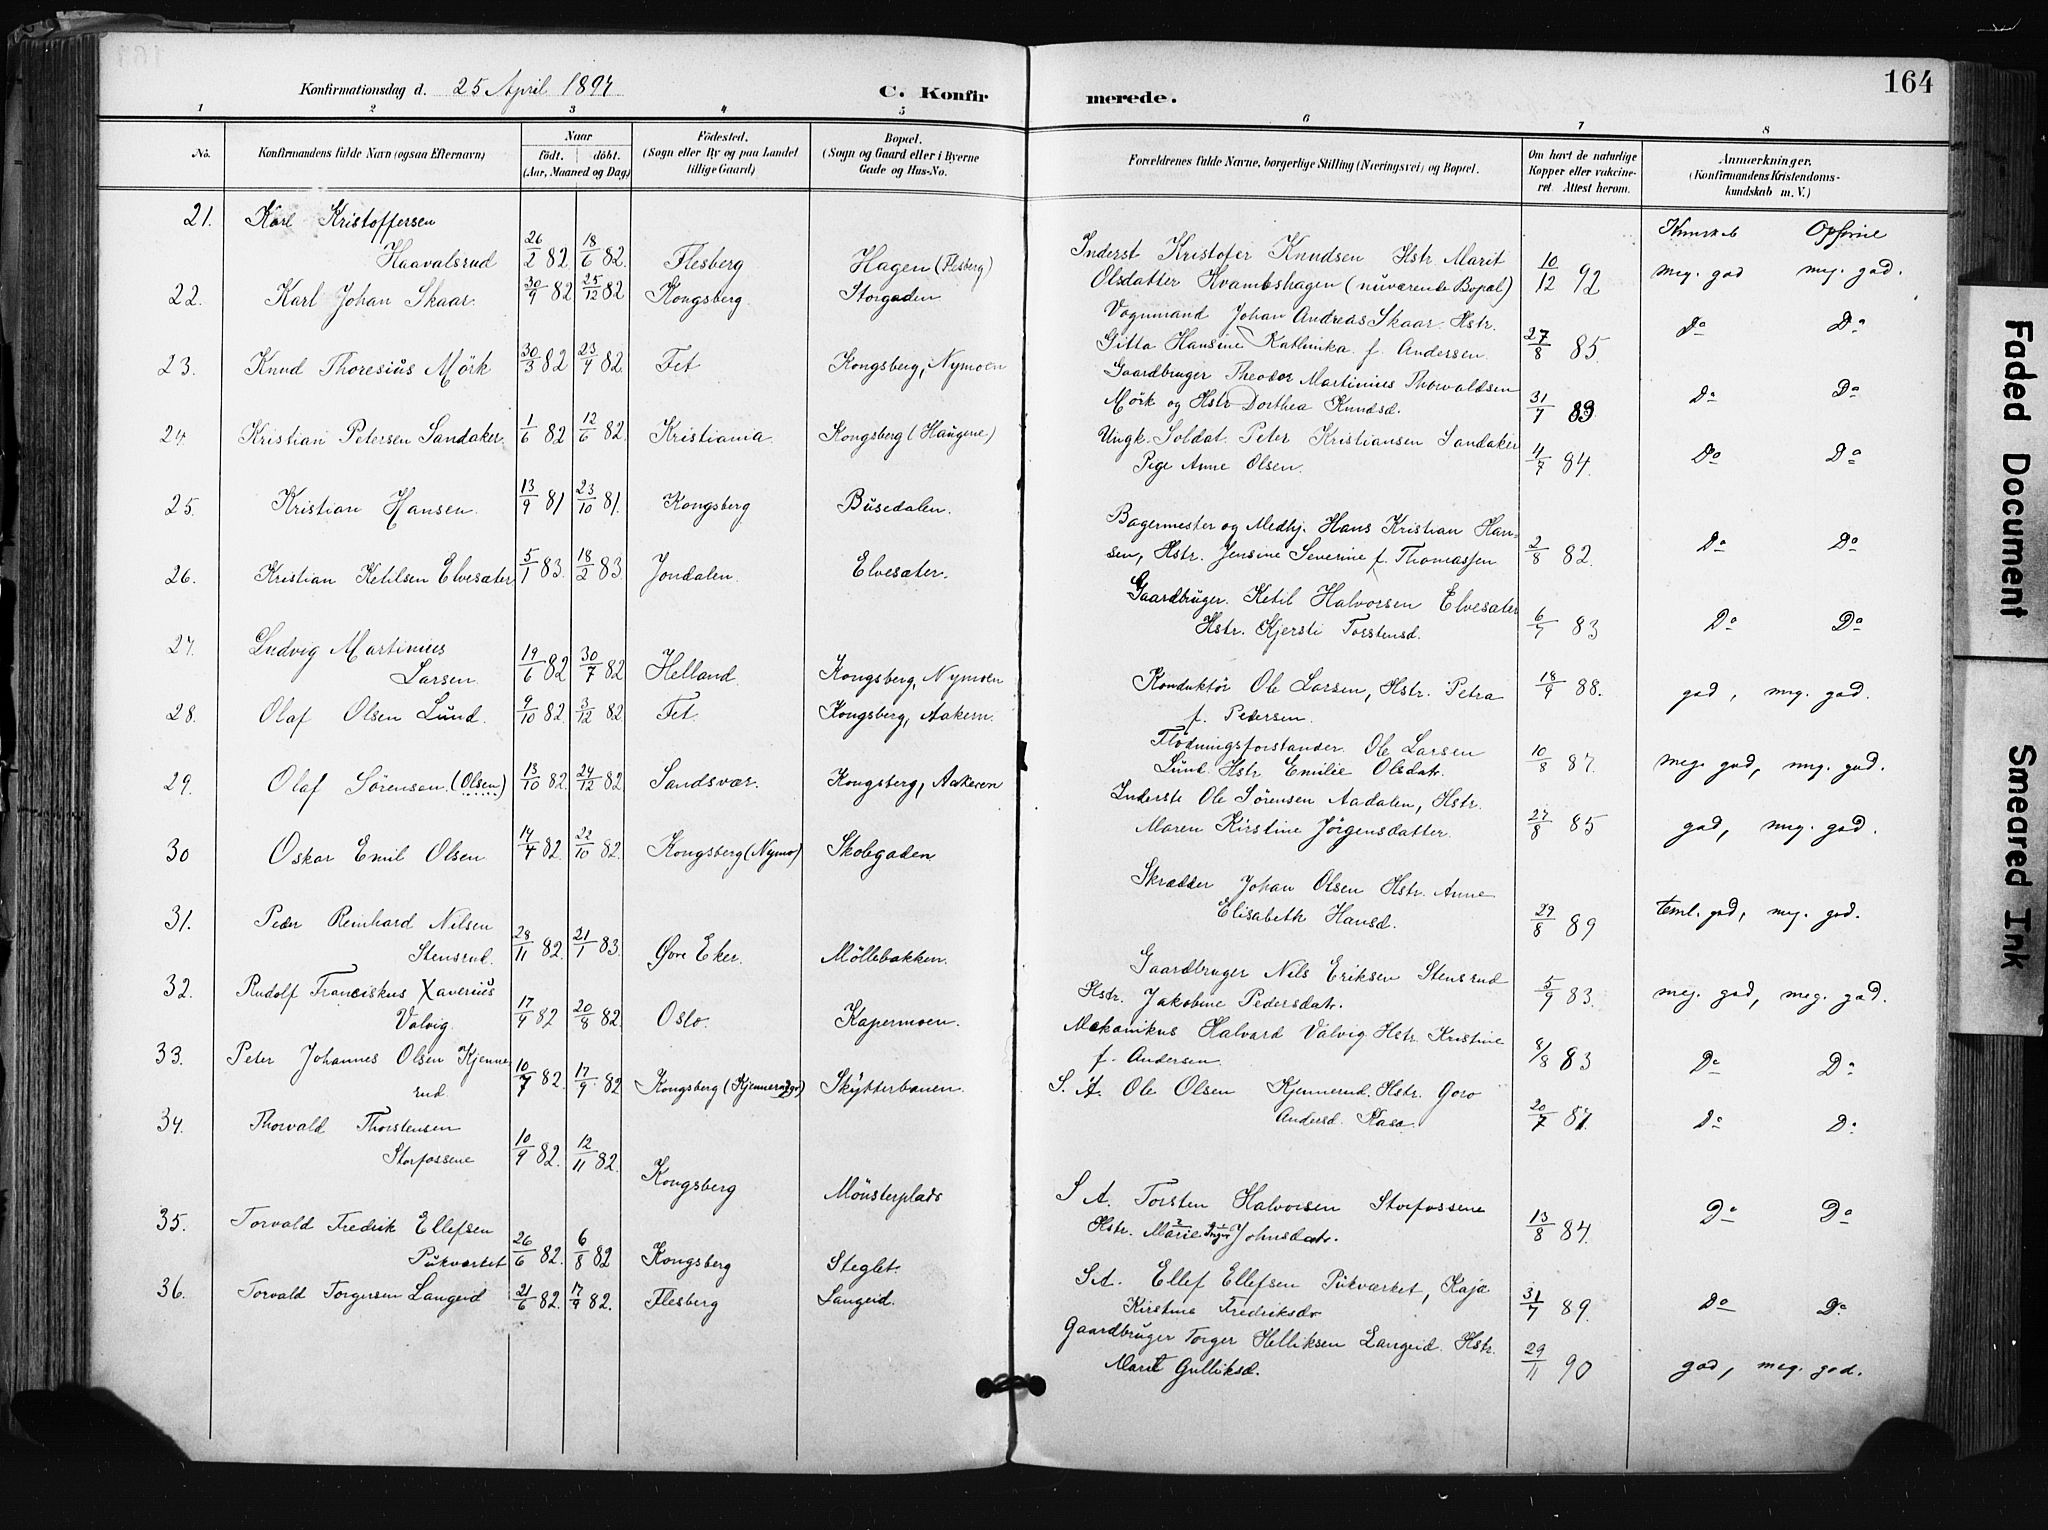 Konfirmationsdag d. 25 April 1897
C. Konfir
merede.
164
1 2 3 4 5 6 7 8
No.
Konfirmandens fulde Navn (ogsaa Efternavn)
Naar
födt. döbt.
(Aar, Maaned og Dag)
Födested.
(Sogn eller By og paa Landet
tillige Gaard.)
Bopæl.
(Sogn og Gaard eller i Byerne
Gade og Hus-No.
Forældrenes fulde Navne, borgerlige Stilling (Næringsvei) og Bopæl.
Om havt de naturlige
Kopper eller vakcine-
ret. Attest herom.
Anmærkninger.
(Konfirmandens Kristendoms-
kundskab m. V.)
Kunskab Opførsel
21. Karl Kristoffersen
Haavalsrud 26/2 82 18/6 82. Flesberg Hagen (Flesberg)
Inderst Kristofer Knudsen Hstr Marit
Olsdatter Kvambshagen (nuværende Bopæl) 10/12 92 meg. god meg. god.
22. Karl Johan Skaar. 30/9 82 25/12 82 Kongsberg. Storgaden
Vognmand Johan Andreas Skaar. Hstr.
Gitta Hansine Kathinka f. Andersen 27/8 85. Do Do
23. Knud Thoresius Mörk 30/3 82 23/4 82 Fet Kongsberg, Nymoen
Gaardbruger Theodor Martinius Thorvaldsen
Mörk og Hstr Dorthea Knudsd. 31/7 83 Do Do
24. Kristian Petersen Sandaker. 1/6 82 12/6 82. Kristiania. Kongsberg (Haugene)
Ungk. Soldat. Peter Kristiansen Sandaker
Pige Anne Olsen. 4/7 84. Do Do
25. Kristian Hansen. 13/9 81 23/10 81. Kongsberg Busedalen.
Bagermester og Medhj. Hans Kristian Han-
sen, Hstr. Jensine Severine f. Thomassen 2/8 82. Do Do
26. Kristian Ketilsen Elvesæter 5/1 83. 18/2 83. Jondalen. Elvesæter.
Gaardbruger. Ketil Halvorsen Elvesæter
Hstr. Kjersti Torstensd. 6/7 83 Do Do
27. Ludvig Martinius
Larsen. 19/6 82 30/7 82 Helland. Kongsberg, Nymoen
Konduktör Ole Larsen, Hstr. Petra
f. Pedersen. 18/9 88. god, meg. god.
28. Olaf Olsen Lund. 9/10 82 3/12 82 Fet. Kongsberg, Aakern.
Flödningsforstander. Ole Larsen
Lund. Hstr Emilie Olsdatr. 10/8 87. meg. god, meg. god.
29. Olaf Sörensen. (Olsen) 13/10 82. 24/12 82 Sandsvær. Kongsberg, Aakeren
Inderste Ole Sörensen Aadalen, Hstr.
Maren Kirstine Jörgensdatter. 27/8 85 god, meg. god.
30 Oskar Emil Olsen 14/4 82. 22/10 82. Kongsberg (Nymo) Skolegaden
Skrædder Johan Olsen Hstr. Anne
Elisabeth Hansd. 29/8 89 teml. god, meg. god.
31. Peder Reinhard Nilsen
Stensrud. 28/11 82. 21/1 83. Øvre Eker. Möllebakken.
Gaardbruger Nils Eriksen Stensrud
Hstr. Jakobine Pedersdatr. 5/9 83. meg. god, meg. god.
32. Rudolf Franciskus Xaverius
Valvig. 17/4 82 20/8 82. Oslo. Kapermoen.
Mekanikus Halvard Valvig Hstr. Kristine
f. Andersen 8/8 83 Do Do
33. Peter Johannes Olsen Kjenne
rud. 10/7 82. 17/9 82 Kongsberg Skytterbanen.
S. A. Ole Olsen Kjennerud. Hstr. Goro
Andersd. 20/7 87. Do Do
34. Thorvald Thorstensen
Storfossene 10/9 82. 12/11 82. Kongsberg Mönsterplads
S A. Torsten Halvorsen Storfossene
Hstr. Marie Inger Johnsdatr. 13/8 84. Do Do
35. Torvald Fredrik Ellefsen
Pukværket 26/6 82. 6/8 82 Kongsberg Steglet.
S.A. Ellef Ellefsen Pukværket, Kaja
Kirstine Fredriksdr 31/7 89. Do Do
36. Torvald Torgersen Langeid 21/6 82. 17/9 82. Flesberg Langeid.
Gaardbruger Torger Helliksen Langeid. Hstr.
Marit Gulliksd. 29/11 90 god, meg. god.
Faded Document
Smeared Ink